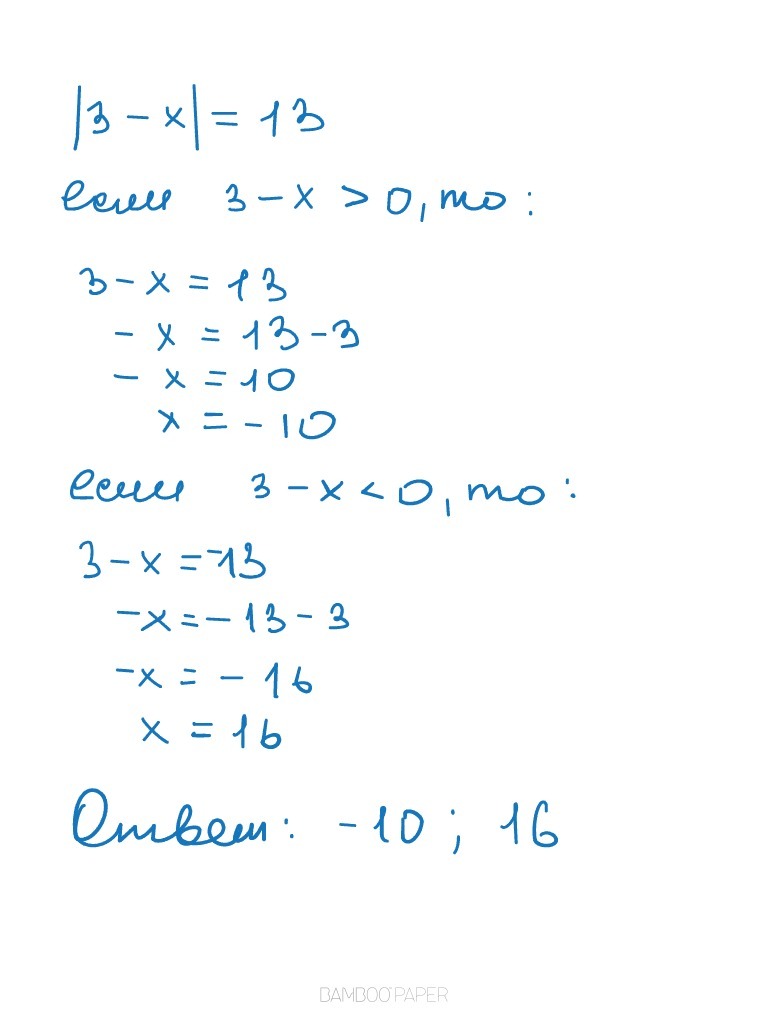 |3 - x| = 13
если 3 - x > 0, то :
3 - x = 13
- x = 13 - 3
- x = 10
x = - 10
если 3 - x < 0, то :
3 - x = -13
-x = - 13 - 3
-x = - 16
x = 16
Ответ: -10 ; 16
BAMBOO PAPER